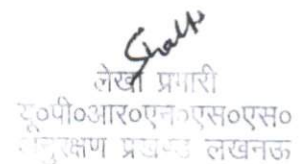 लेखा प्रभारी
यू०पी०आर०एन०एस०एस०
अनुरक्षण प्रखण्ड लखनऊ